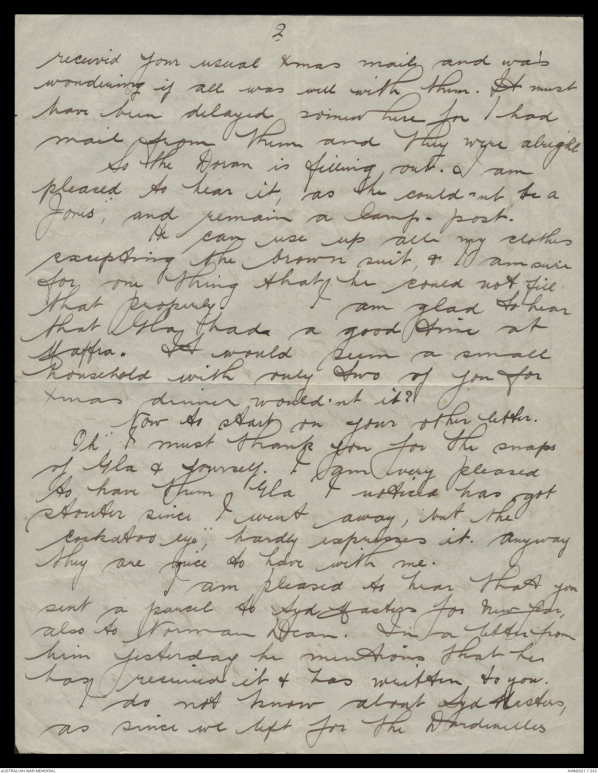 2
received your usual Xmas mail, and was
wondering if all was well with them. It must
have been delayed somewhere for I had
mail from them and they were alright
So the Doran is filling out. I am
pleased to hear it, as he could nt be a
Jones, and remain a lamp-post.
He can use up all my clothes
excepting the brown suit, & I am sure
for one thing that he could not fill
that properly. I am glad to hear
that Gla had a good time at
Maffra. It would seem a small
household with only two of you for
Xmas dinner would.nt it?
Now to start on your other letter.
I must thank you for the snaps
of Gla & yourself. I am very pleased
to have them. Gla I noticed has got
stouter since I went away, but the
"cockatoo eye" hardly expresses it. anyway
they are nice to have with me.
I am pleased to hear that you
sent a parcel to Syd Masters for New Year,
also to Norman Dean. In a letter from
him yesterday he mentions that he
has received it & has written to you.
I do not know about Syd Masters,
as since we left for the Dardenelles
AUSTRALIAN WAR MEMORIAL
AWM2021.7.242